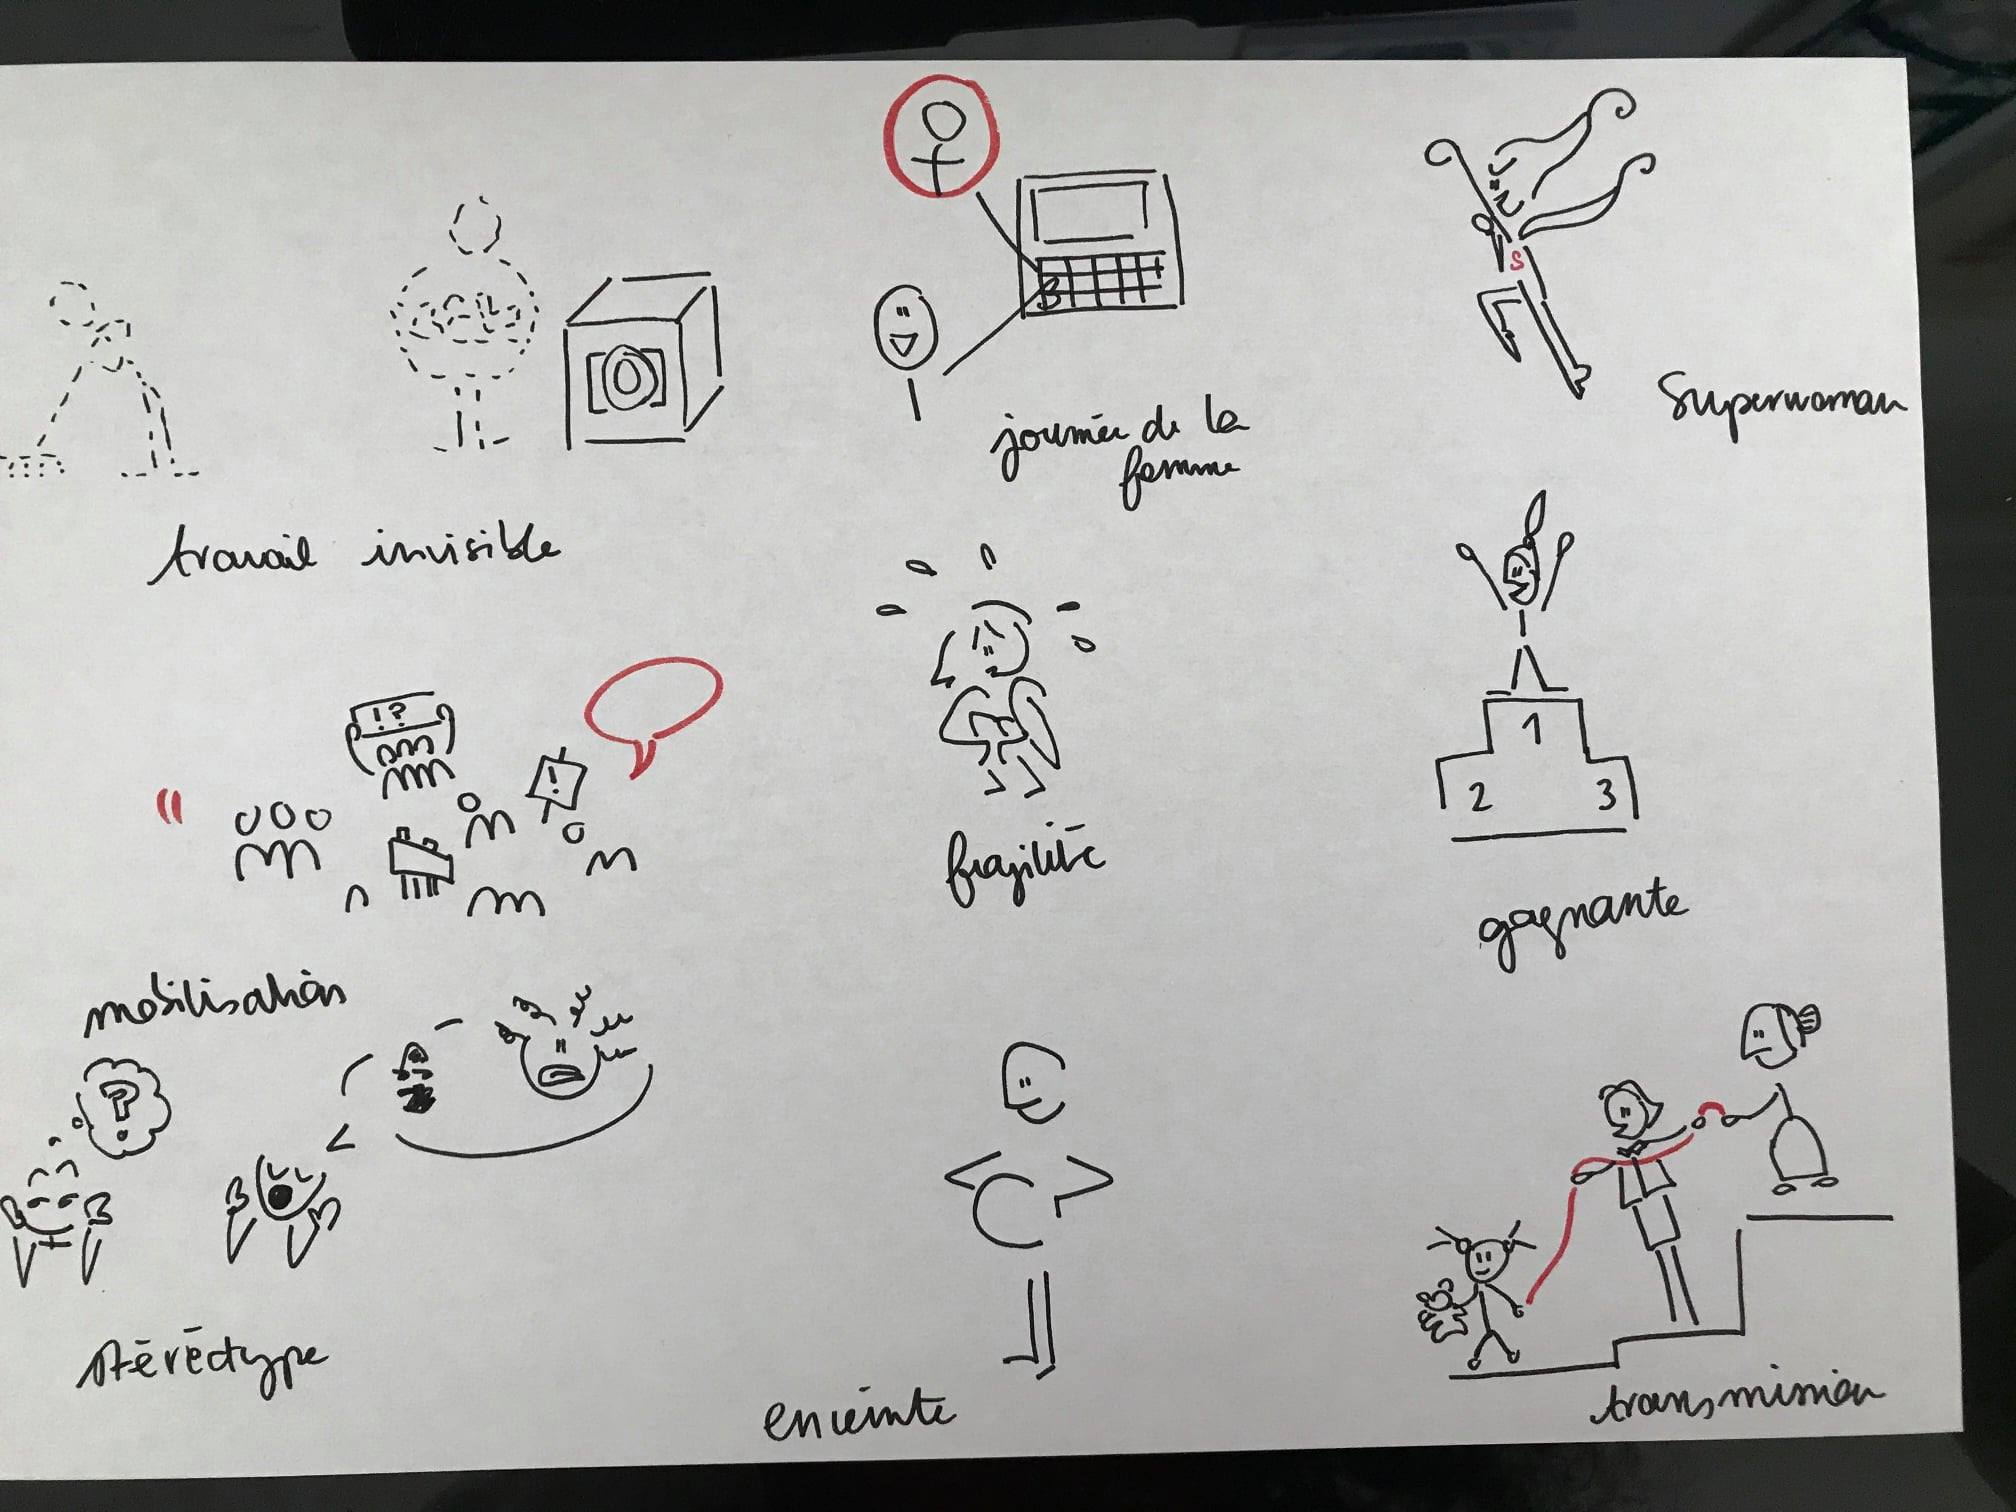 8
S
journée de la
femme
Superwoman
travail invisible
!?
!
1
2 3
fragilité
gagnante
mobilisation
?
stéréotype
enceinte
transmission